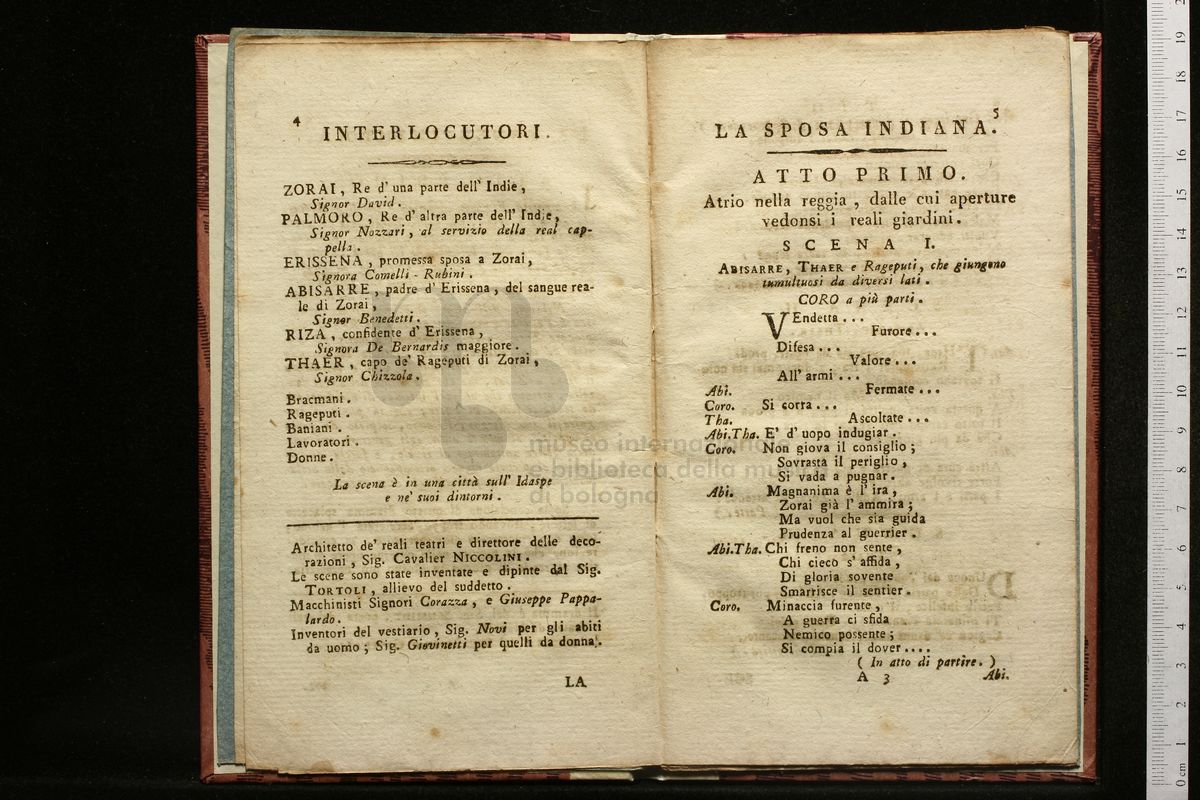 4
INTERLOCUTORI.
ZORAI, Re d' una parte dell' Indie,
Signor David.
PALMORO, Re d' altra parte dell' Indie,
Signor Nozzari, al servizio della real cap-
pella.
ERISSENA, promessa sposa a Zorai,
Signora Comelli - Rubini.
ABISARRE, padre d' Erissena, del sangue rea-
le di Zorai,
Signor Benedetti.
RIZA, confidente d' Erissena,
Signora De Bernardis maggiore.
THAER, capo de' Rageputi di Zorai,
Signor Chizzola.
Bracmani.
Rageputi.
Baniani.
Lavoratori.
Donne.
La scena è in una città sull' Idaspe
e ne' suoi dintorni.
Architetto de' reali teatri e direttore delle deco-
razioni, Sig. Cavalier NICCOLINI.
Le scene sono state inventate e dipinte dal Sig.
TORTOLI, allievo del suddetto.
Macchinisti Signori Corazza, e Giuseppe Pappa-
lardo.
Inventori del vestiario, Sig. Novi per gli abiti
da uomo; Sig. Giovinetti per quelli da donna.
LA
5
LA SPOSA INDIANA.
ATTO PRIMO.
Atrio nella reggia, dalle cui aperture
vedonsi i reali giardini.
SCENA I.
ABISARRE, THAER e Rageputi, che giungono
tumultuosi da diversi lati.
CORO a più parti.
VEndetta...
Furore...
Difesa...
Valore...
All' armi...
Abi. Fermate...
Coro. Si corra...
Tha. Ascoltate...
Abi.Tha. E' d' uopo indugiar.
Coro. Non giova il consiglio;
Sovrasta il periglio,
Si vada a pugnar.
Abi. Magnanima è l' ira,
Zorai già l' ammira;
Ma vuol che sia guida
Prudenza al guerrier.
Abi.Tha. Chi freno non sente,
Chi cieco s' affida,
Di gloria sovente
Smarrisce il sentier.
Coro. Minaccia furente,
A guerra ci sfida
Nemico possente;
Si compia il dover....
( In atto di partire. )
A 3 Abi.
museo internazionale
e biblioteca della musica
di bologna
0 cm 1 2 3 4 5 6 7 8 9 10 11 12 13 14 15 16 17 18 19